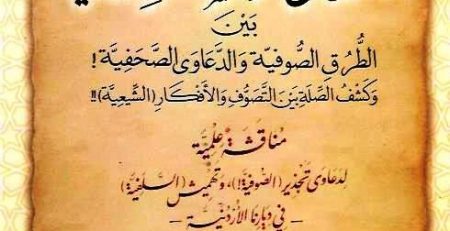 بَيْنَ
الطُّرُقِ الصُّوفِيَّةِ وَالدَّعَاوَى الصَّحَفِيَّةِ!
وَكَشْفُ الصِّلَةِ بَيْنَ التَّصَوُّفِ وَالأَفْكَارِ (الشِّيعِيَّةِ)!!
مُنَاقَشَةٌ عِلْمِيَّةٌ
لِدَعَاوَى تَجْذِيرِ (الصُّوفِيَّةِ!)، وَتَهْمِيشِ (السَّلَفِيَّةِ)
- فِي دِيَارِنَا الأُرْدُنِيَّةِ -